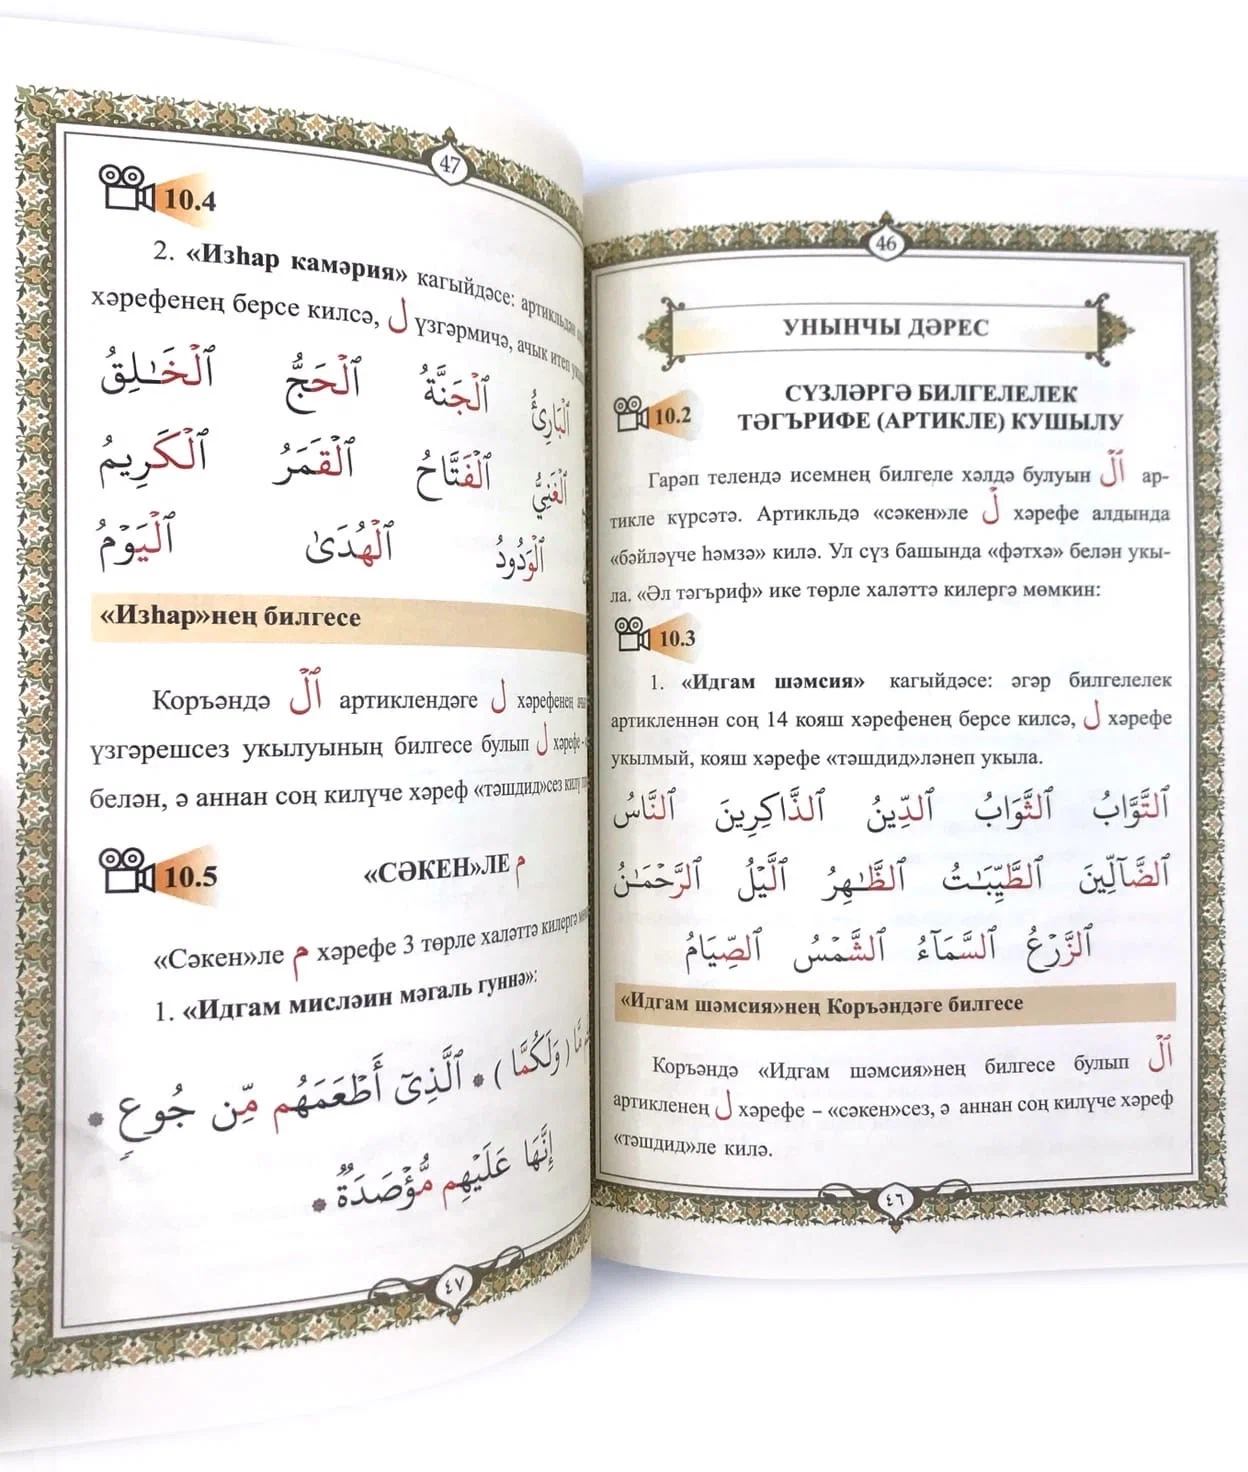 46
УНЫНЧЫ ДӘРЕС
10.2
СҮЗЛӘРГӘ БИЛГЕЛЕЛЕК
ТӘГЪРИФЕ (АРТИКЛЕ) КУШЫЛУ
Гарәп телендә исемнең билгеле хәлдә булуын اَلْ ар-
тикле күрсәтә. Артикльдә «сәкен»ле لْ хәрефе алдында
«бәйләүче һәмзә» килә. Ул сүз башында «фәтхә» белән укы-
ла. «Әл тәгъриф» ике төрле халәттә килергә мөмкин:
10.3
1. «Идгам шәмсия» кагыйдәсе: әгәр билгелелек
артикленнән соң 14 кояш хәрефенең берсе килсә, ل хәрефе
укылмый, кояш хәрефе «тәшдид»ләнеп укыла.
ٱلتَّوَّابُ ٱلثَّوَابُ ٱلدِّينُ ٱلذَّاكِرِينَ ٱلنَّاسُ
ٱلضَّآلِّينَ ٱلطَّيِّبَـٰتُ ٱلظَّـٰهِرُ ٱلَّيْلُ ٱلرَّحْمَـٰنُ
ٱلزَّرْعُ ٱلسَّمَآءُ ٱلشَّمْسُ ٱلصِّيَامُ
«Идгам шәмсия»нең Коръәндәге билгесе
Коръәндә «Идгам шәмсия»нең билгесе булып اَلْ
артикленең ل хәрефе – «сәкен»сез, ә аннан соң килүче хәреф
«тәшдид»ле килә.
٤٦
47
10.4
2. «Изһар камәрия» кагыйдәсе: артикльдән
хәрефенең берсе килсә, ل үзгәрмичә, ачык итеп
ٱلْبَارِئُ ٱلْجَنَّةُ ٱلْحَجُّ ٱلْخَـٰلِقُ
ٱلْغَنِيُّ ٱلْفَتَّاحُ ٱلْقَمَرُ ٱلْكَرِيمُ
ٱلْوَدُودُ ٱلْهُدَىٰ ٱلْيَوْمُ
«Изһар»нең билгесе
Коръәндә اَلْ артиклендәге ل хәрефенең
үзгәрешсез укылуының билгесе булып ل хәрефе -
белән, ә аннан соң килүче хәреф «тәшдид»сез килү
10.5
«СӘКЕН»ЛЕ م
«Сәкен»ле م хәрефе 3 төрле халәттә килергә
1. «Идгам мисләин мәгаль гуннә»:
مَّا (وَلَكُم مَّا) ۞ ٱلَّذِىٓ أَطْعَمَهُم مِّن جُوعٍ ۞
إِنَّهَا عَلَيْهِم مُّؤْصَدَةٌ ۞
٤٧